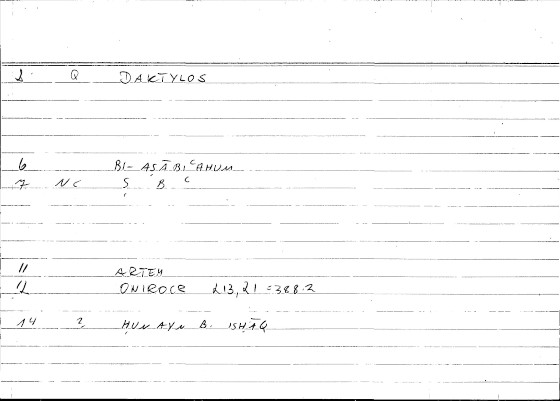 1 Q DAKTYLOS
6 BI-AṢĀBIᶜAHUM
7 NC Ṣ B ᶜ
11 ARTEM
12 ONIROCR 213,21 = 388.2
14 2 ḤUNAYN B. ISḤĀQ